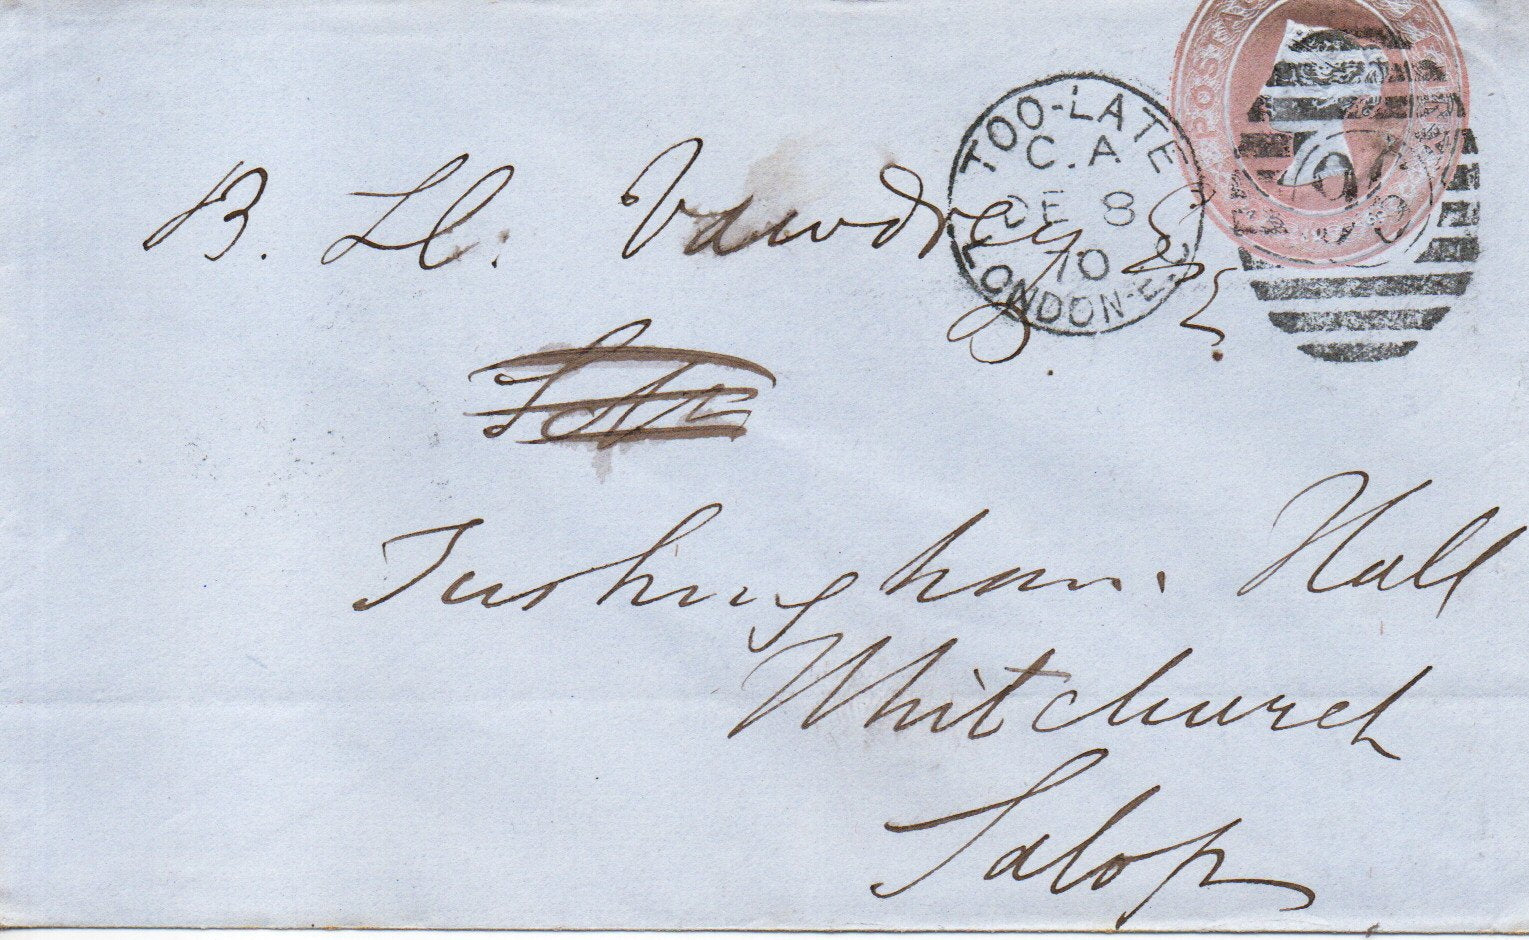 TOO-LATE
C.A
DE 8
70
LONDON-E.C
B. Ll. Vawdrey Esq
Tushingham Hall
Whitchurch
Salop